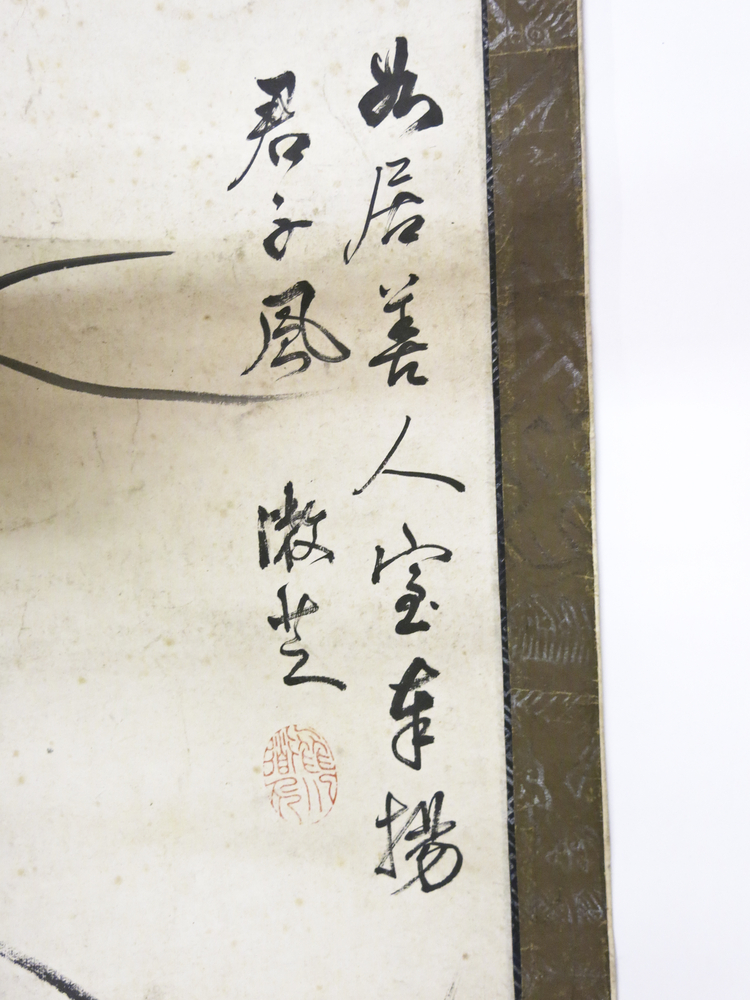 如居善人室奉揚
君子風 芝